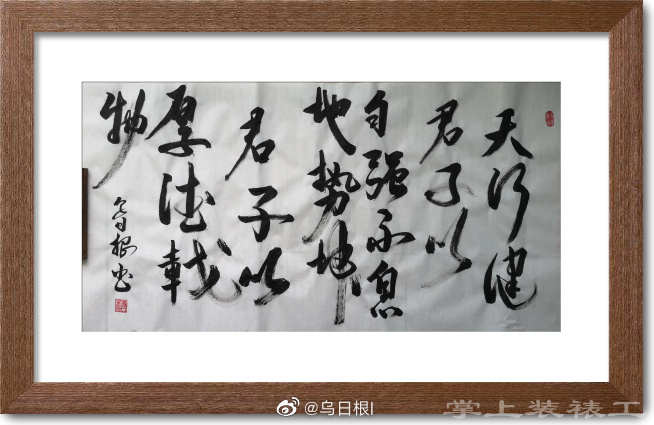 天行健
君子以
自强不息
地势坤
君子以
厚德载
物
乌日根书
@乌日根l
掌上装裱工